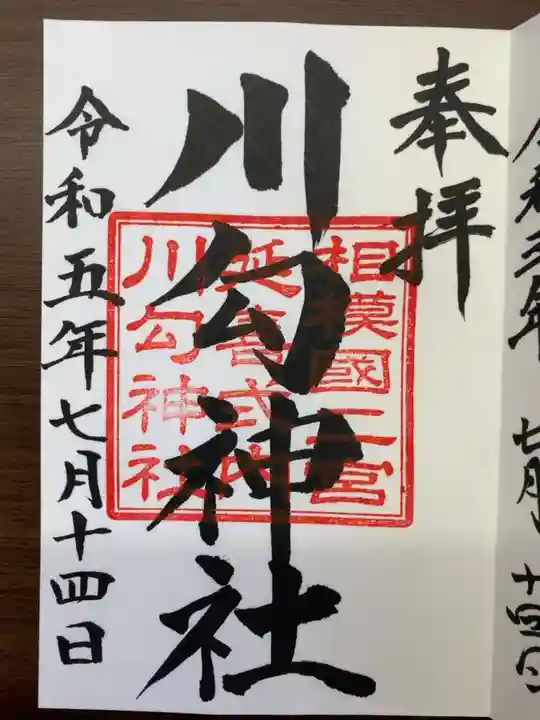 奉拝
川勾神社
令和五年七月十四日
相模國二宮
延喜式内
川勾神社
年
七月
十四日